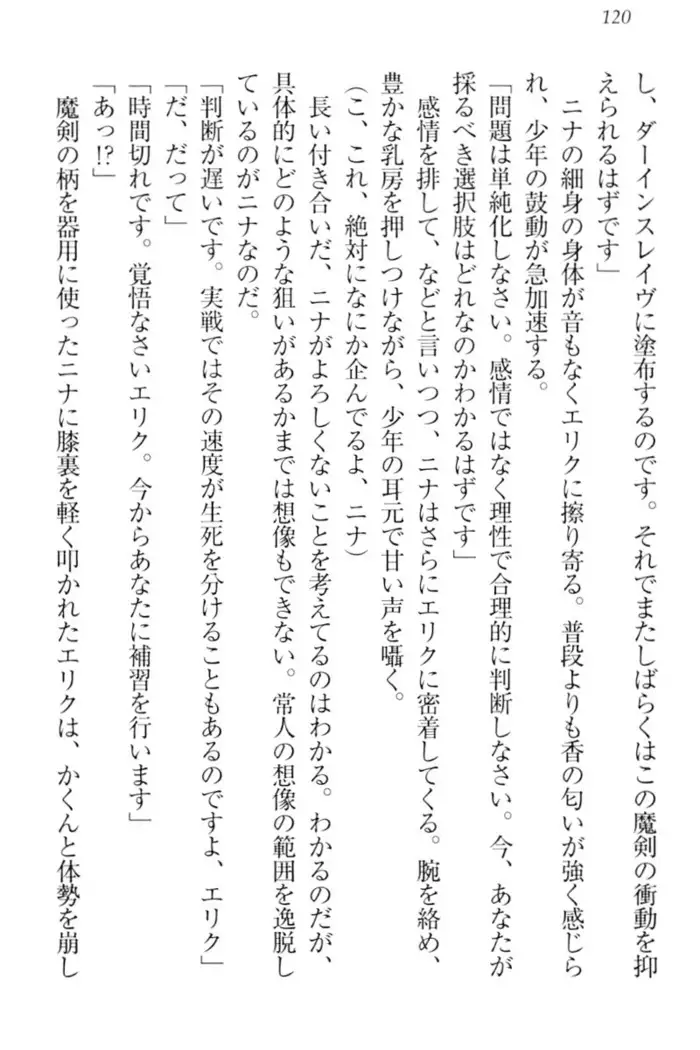 120
し、ダーインスレイヴに塗布するのです。それでまたしばらくはこの魔剣の衝動を抑
えられるはずです」
ニナの細身の身体が音もなくエリクに擦り寄る。普段よりも香の匂いが強く感じら
れ、少年の鼓動が急加速する。
「問題は単純化しなさい。感情ではなく理性で合理的に判断しなさい。今、あなたが
採るべき選択肢はどれなのかわかるはずです」
感情を排して、などと言いつつ、ニナはさらにエリクに密着してくる。腕を絡め、
豊かな乳房を押しつけながら、少年の耳元で甘い声を囁く。
(こ、これ、絶対になにか企んでるよ、ニナ)
長い付き合いだ、ニナがよろしくないことを考えてるのはわかる。わかるのだが、
具体的にどのような狙いがあるかまでは想像もできない。常人の想像の範囲を逸脱し
ているのがニナなのだ。
「判断が遅いです。実戦ではその速度が生死を分けることもあるのですよ、エリク」
「だ、だって」
「時間切れです。覚悟なさいエリク。今からあなたに補習を行います」
「あっ!?」
魔剣の柄を器用に使ったニナに膝裏を軽く叩かれたエリクは、かくんと体勢を崩し